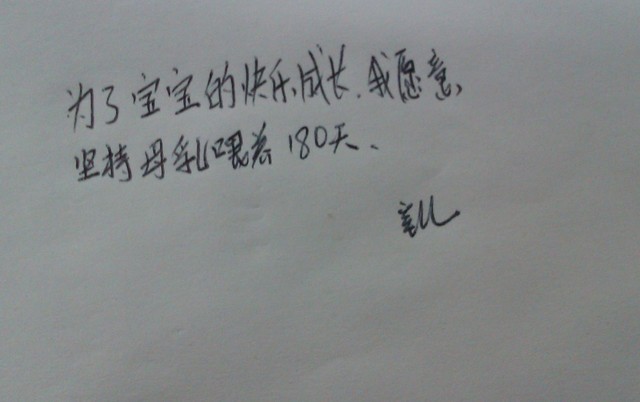 为了宝宝的快乐成长,我愿意,
坚持母乳喂养180天、